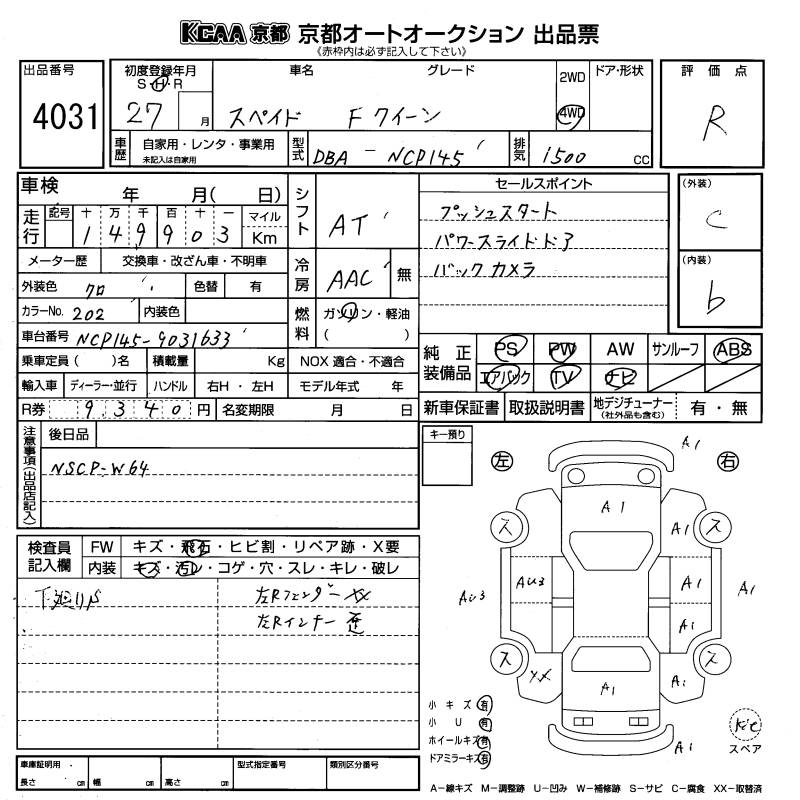 KCAA 京都 京都オートオークション 出品票
《赤枠内は必ず記入して下さい》
出品番号
4031
初度登録年月
S・H・R
27 月
車名 グレード
スペイド Fクイーン
2WD
4WD
ドア・形状
評価点
R
車歴
自家用・レンタ・事業用
未記入は自家用
型式
DBA-NCP145
排気
1500 CC
車検 年 月( 日)
走行
記号 十 万 千 百 十 一 マイル
1 4 9 9 0 3 Km
シフト
AT
セールスポイント
プッシュスタート
パワースライドドア
バックカメラ
(外装)
C
(内装)
b
メーター歴 交換車・改ざん車・不明車
外装色 クロ 色替 有
冷房
AAC 無
カラーNo. 202 内装色
燃料
ガソリン・軽油
( )
車台番号 NCP145-9031633
乗車定員( )名 積載量 Kg NOX 適合・不適合
輸入車 ディーラー・並行 ハンドル 右H・左H モデル年式 年
R券 9340円 名変期限 月 日
純正装備品
PS PW AW サンルーフ ABS
エアバック TV ナビ
新車保証書 取扱説明書 地デジチューナー(社外品も含む) 有・無
注意事項(出品店記入)
後日品
NSCP-W64
キー預り
検査員記入欄
FW キズ・飛石・ヒビ割・リペア跡・X要
内装 キズ・汚レ・コゲ・穴・スレ・キレ・破レ
下廻りS
左Rフェンダー XX
左Rインナー 歪
左 右
A1
A1
ス ス
A1
AU3 AU3 A1 A1
A1
ス ス
YX A1 A1
A1
小キズ 有
小U 有
ホイールキズ 有
ドアミラーキズ 有
スペア
A-線キズ M-調整跡 U-凹み W-補修跡 S-サビ C-腐食 XX-取替済
車庫証明用・長さ cm 幅 cm 高さ cm
型式指定番号
類別区分番号